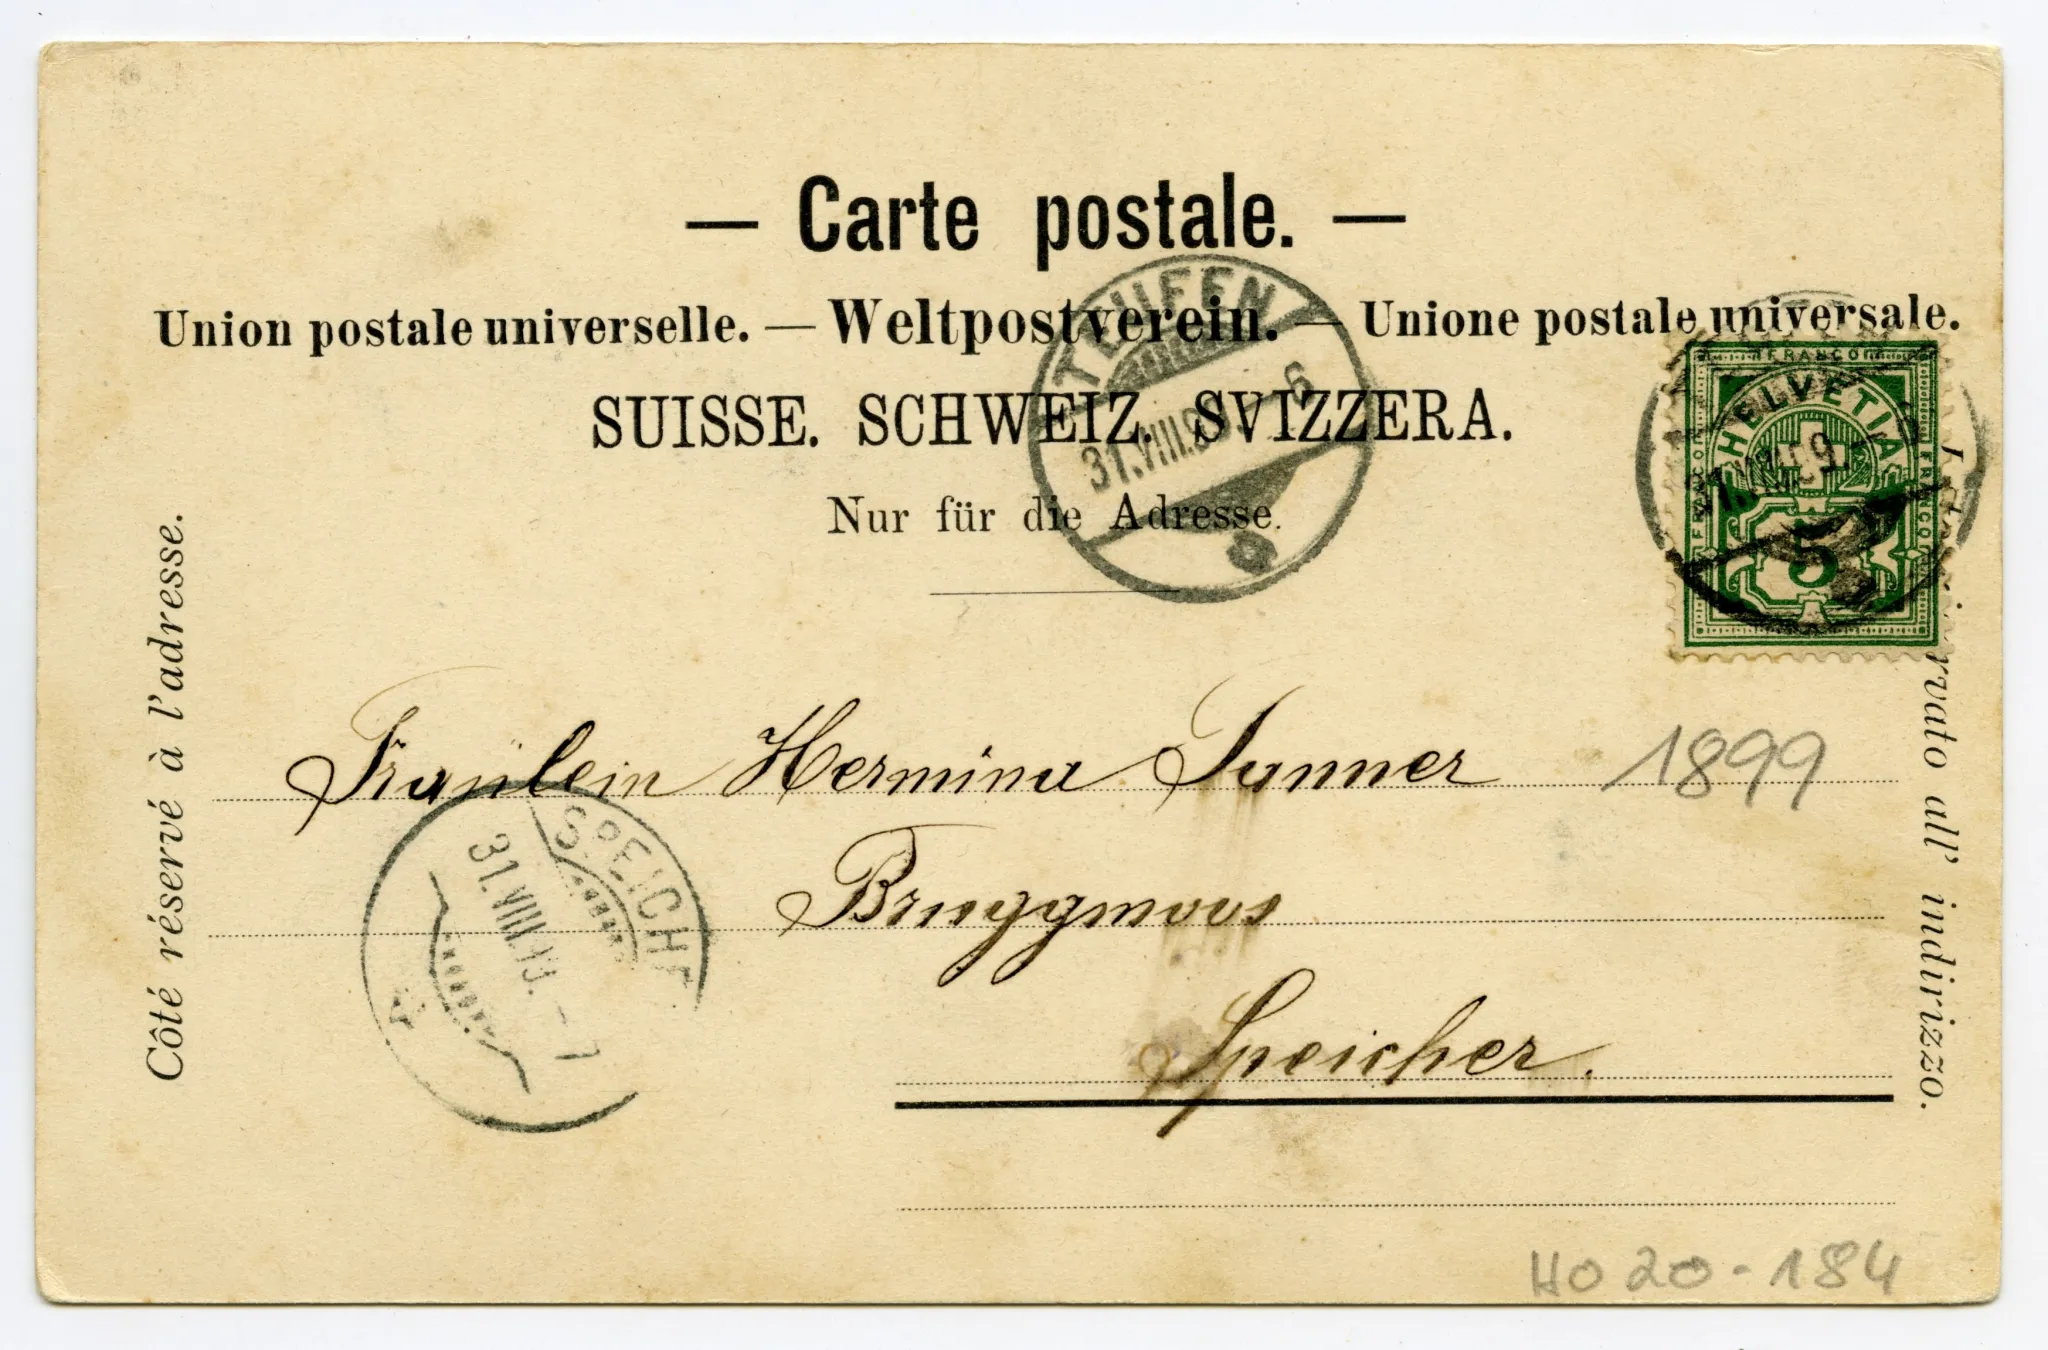 — Carte postale. —
Union postale universelle. — Weltpostverein. — Unione postale universale.
SUISSE. SCHWEIZ. SVIZZERA.
Nur für die Adresse.
TEUFEN
31.VIII.99. - 6
FRANCO
HELVETIA
FRANCO
FRANCO
5
Côté réservé à l'adresse.
rvato all' indirizzo.
Fräulein Hermina Tanner
1899
Brueggmoos
Speicher.
SPEICHE
31.VIII.
- 7
HO 20-184